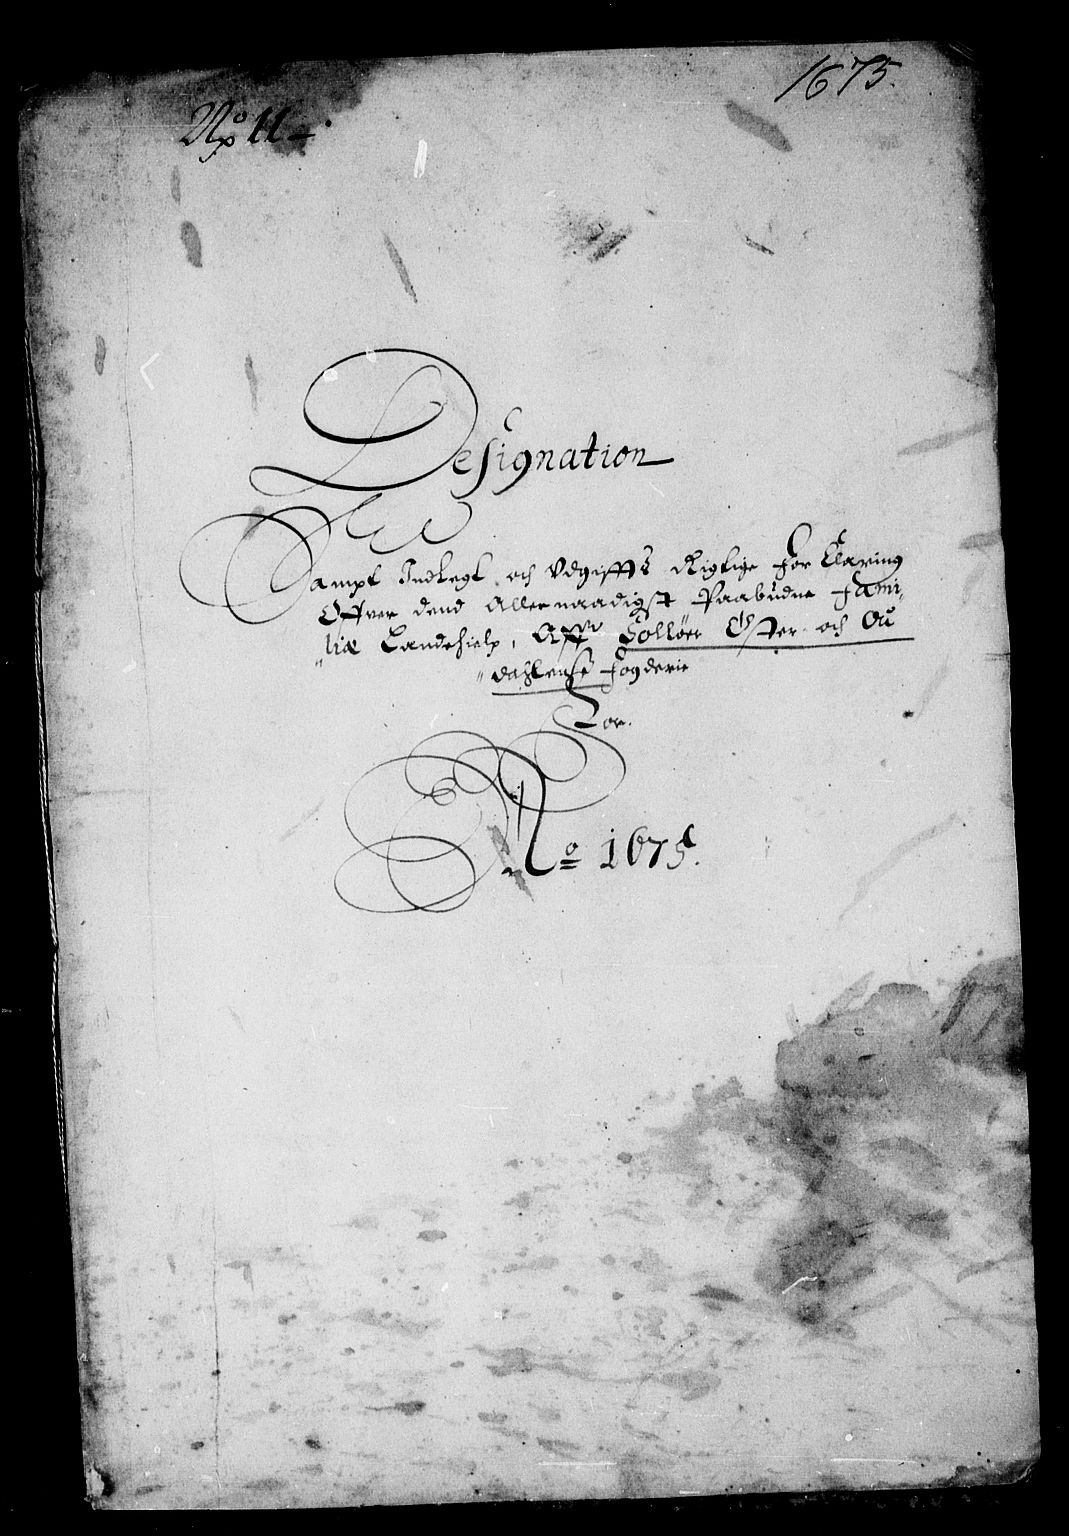 1675.
No 11
Designation
Sampt Indtegt och Udgiffts Rigtige for Claring
Offver dend Allernaadigst Paabudne Fami„
„liæ Landehielp, Aff Solløer Øster och Ou
„dahlenss Fogderie
For.
No 1675.